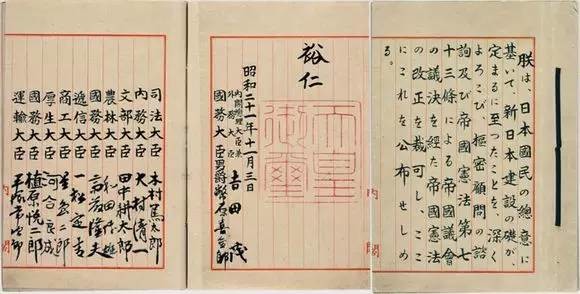 朕は、日本國民の總意に
基いて、新日本建設の礎が、
定まるに至つたことを、深く
よろこび、樞密顧問の諮
詢及び帝國憲法第七
十三條による帝國議會
の議決を經た帝國憲法
の改正を裁可し、ここ
にこれを公布せしめ
る。
內閣
裕仁
天皇御璽
昭和二十一年十一月三日
內閣總理大臣兼
外務大臣 吉田茂
國務大臣男爵幣原喜重郎
內閣
司法大臣 木村篤太郎
內務大臣 大村清一
文部大臣 田中耕太郎
農林大臣 和田博雄
國務大臣 斎藤隆夫
遞信大臣 一松定吉
商工大臣 星島二郎
厚生大臣 河合良成
國務大臣 植原悦二郎
運輸大臣 平塚常次郎
內閣